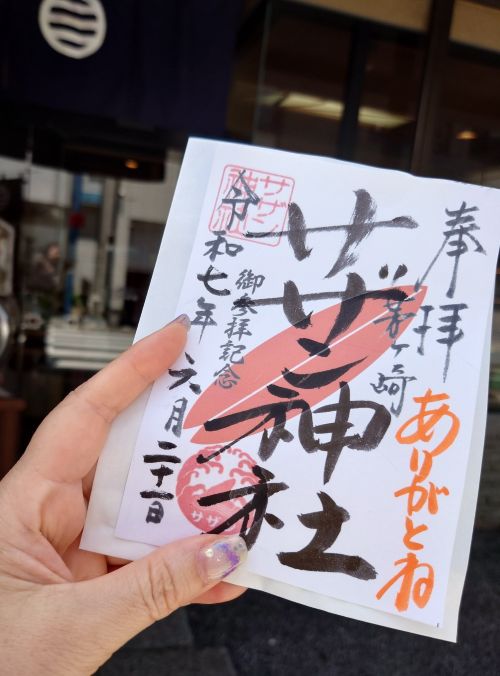 奉拝
茅ヶ崎
ありがとね
サザン神社
御参拝記念
令和七年六月二十一日
サザン
神社
サザ